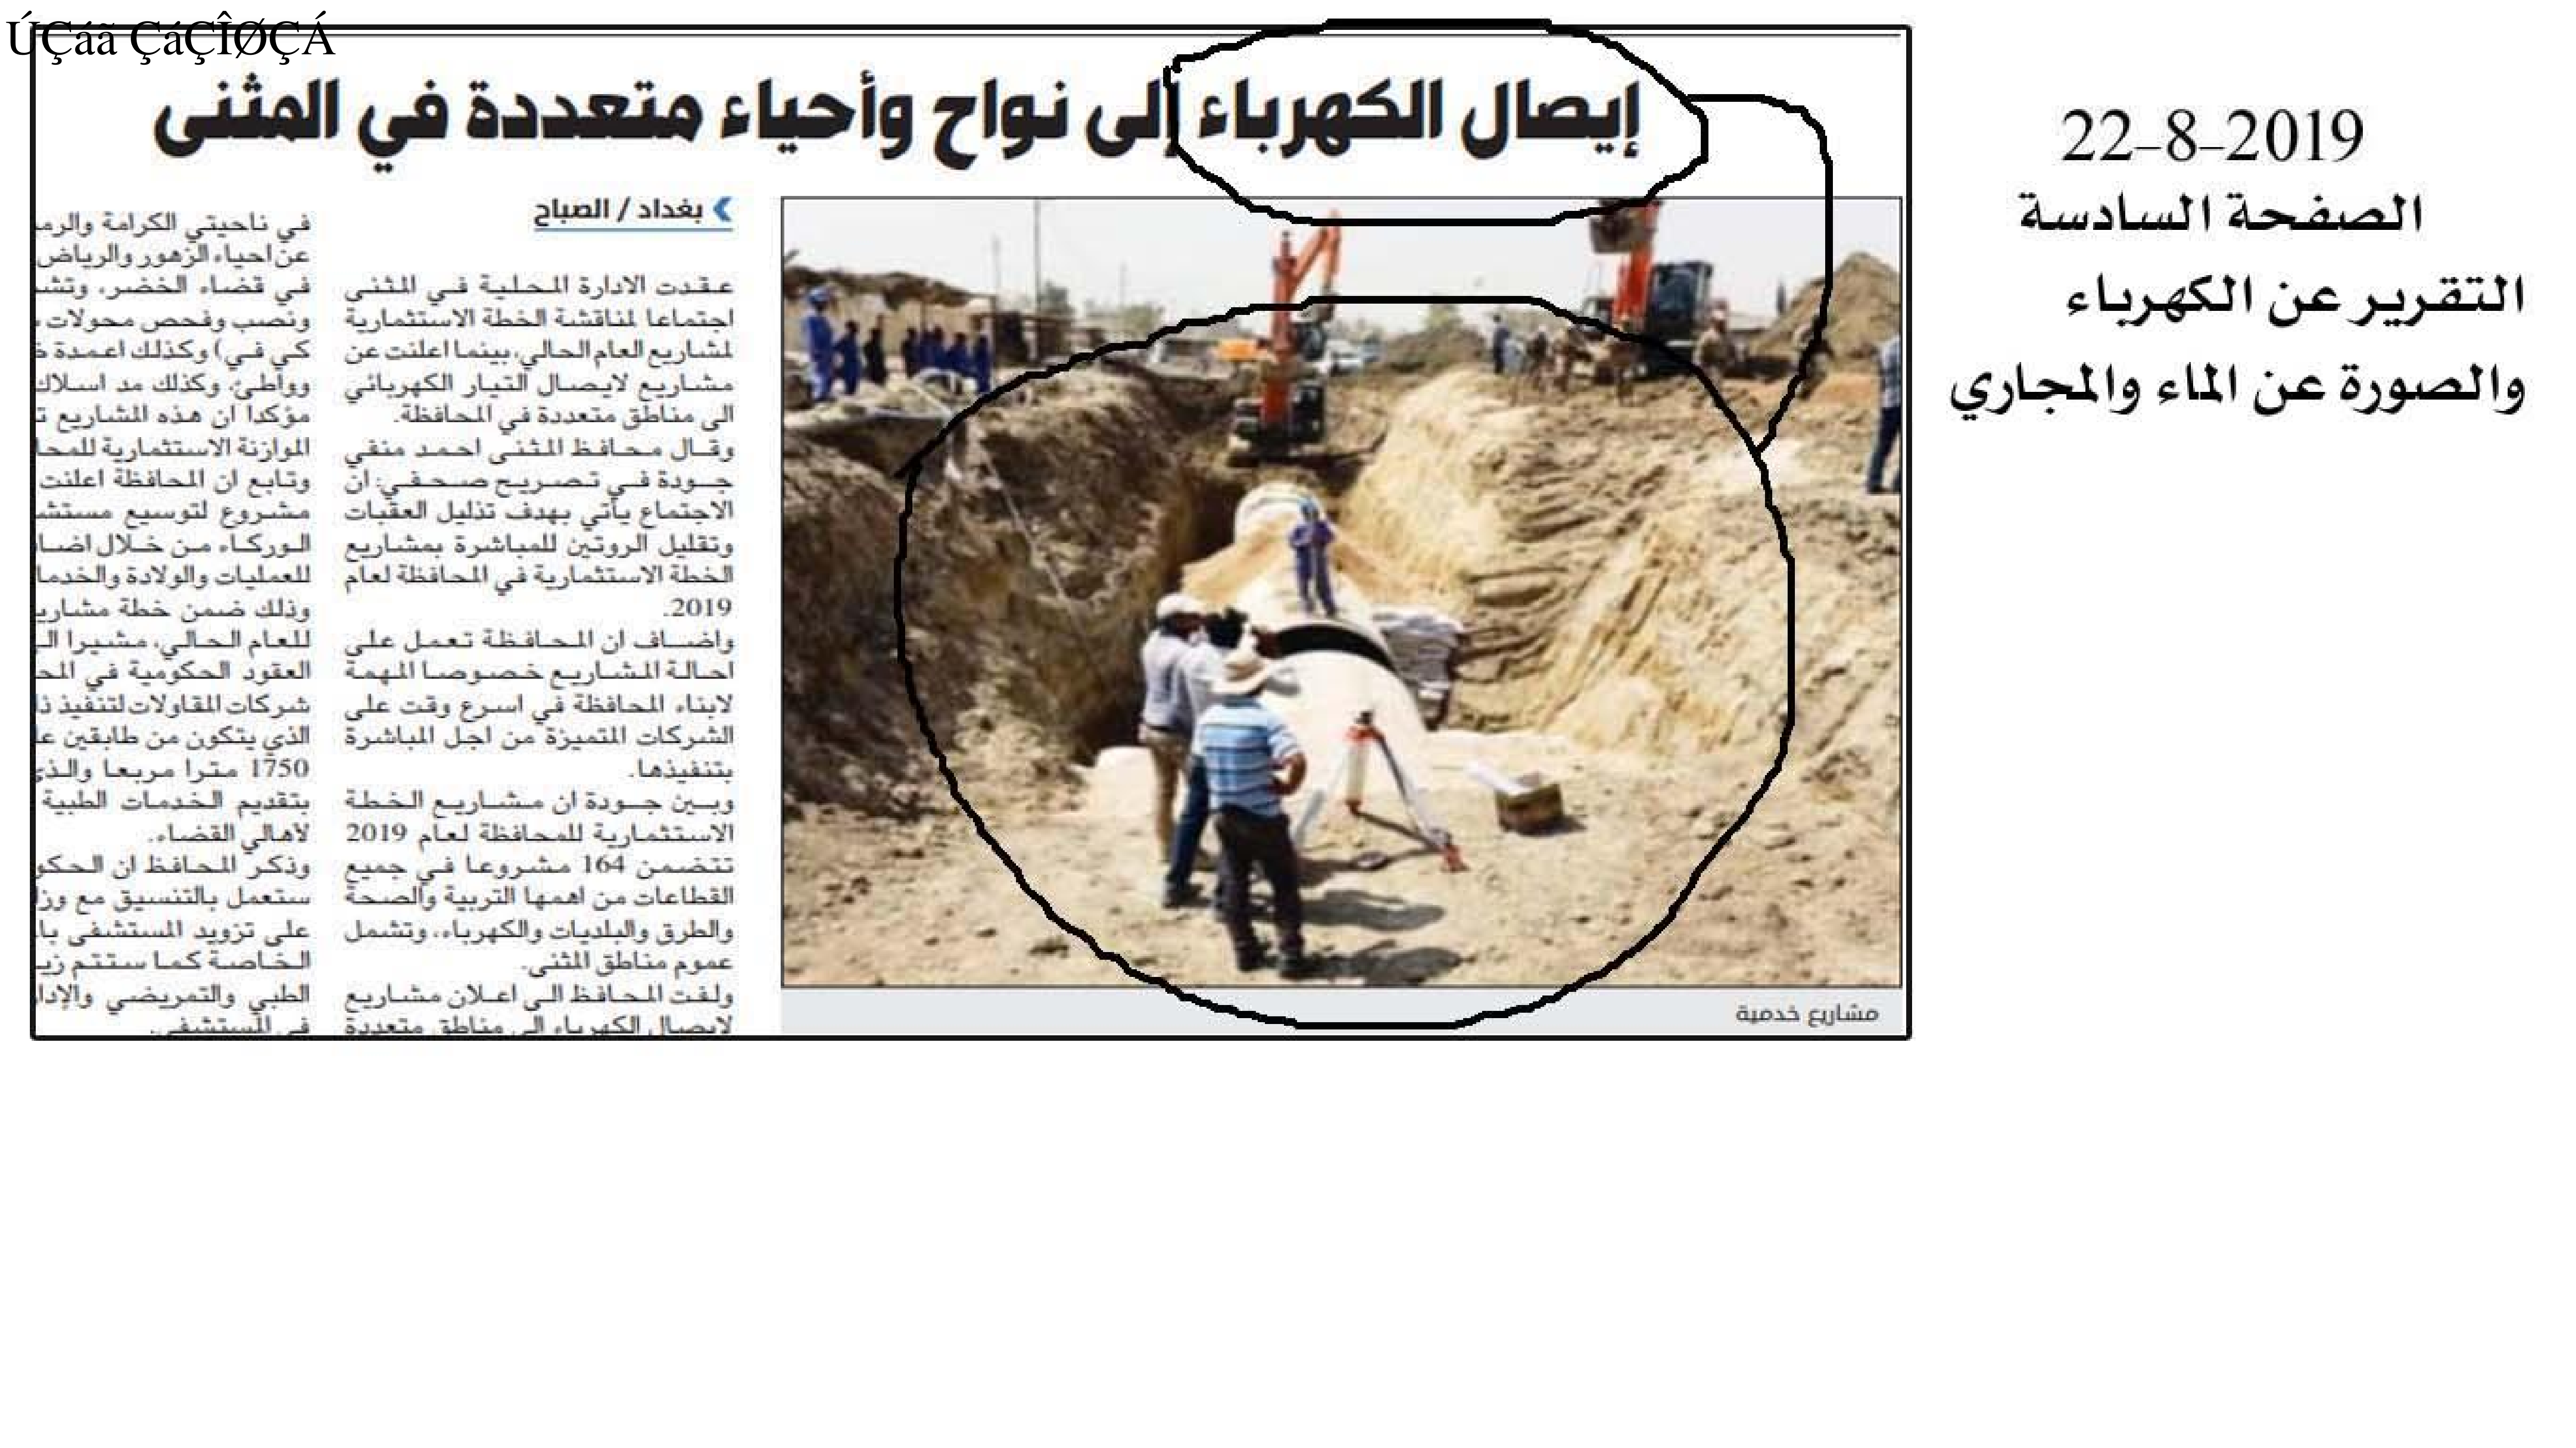 ÚÇáã ÇáÇÎØÇÁ
إيصال الكهرباء إلى نواح وأحياء متعددة في المثنى
22-8-2019
الصفحة السادسة
التقرير عن الكهرباء
والصورة عن الماء والمجاري
مشاريع خدمية
بغداد / الصباح
عقدت الادارة المحلية في المثنى
اجتماعا لمناقشة الخطة الاستثمارية
لمشاريع العام الحالي، بينما اعلنت عن
مشاريع لايصال التيار الكهربائي
الى مناطق متعددة في المحافظة.
وقال محافظ المثنى احمد منفي
جودة في تصريح صحفي: ان
الاجتماع يأتي بهدف تذليل العقبات
وتقليل الروتين للمباشرة بمشاريع
الخطة الاستثمارية في المحافظة لعام
2019.
واضاف ان المحافظة تعمل على
احالة المشاريع خصوصا المهمة
لابناء المحافظة في اسرع وقت على
الشركات المتميزة من اجل المباشرة
بتنفيذها.
وبين جودة ان مشاريع الخطة
الاستثمارية للمحافظة لعام 2019
تتضمن 164 مشروعا في جميع
القطاعات من اهمها التربية والصحة
والطرق والبلديات والكهرباء، وتشمل
عموم مناطق المثنى.
ولفت المحافظ الى اعلان مشاريع
لايصال الكهرباء الى مناطق متعددة
في ناحيتي الكرامة
عن احياء الزهور والرياض
في قضاء الخضر،
ونصب وفحص محولات
كي في) وكذلك اعمدة
وواطئ، وكذلك مد اسلاك
مؤكدا ان هذه المشاريع
الموازنة الاستثمارية
وتابع ان المحافظة اعلنت
مشروع لتوسيع
الوركاء من خلال
للعمليات والولادة
وذلك ضمن خطة
للعام الحالي، مشيرا
العقود الحكومية في
شركات المقاولات لتنفيذ
الذي يتكون من طابقين
1750 مترا مربعا
بتقديم الخدمات الطبية
لأهالي القضاء.
وذكر المحافظ ان
ستعمل بالتنسيق مع
على تزويد المستشفى
الخاصة كما ستتم
الطبي والتمريضي
في المستشفى.